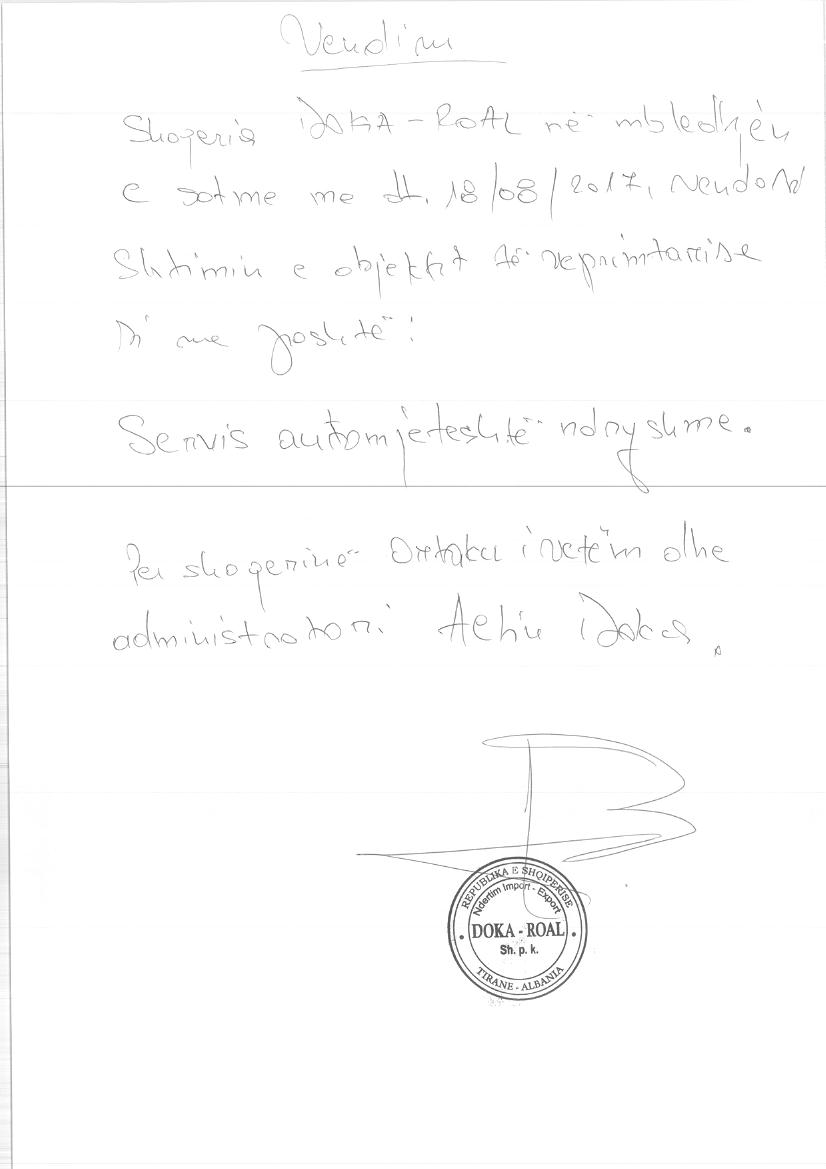 Vendim
Shoqeria DOKA - ROAL në mbledhjen
e sotme me dt. 18/08/2017, vendosi
Shtimin e objektit të veprimtarise
si me poshtë:
Servis automjeteshtë ndryshme.
Per shoqerinë Ortaku i vetëm dhe
administratori Doka.
REPUBLIKA E SHQIPERISE
Ndertim Import - Export
DOKA - ROAL
Sh. p. k.
TIRANE - ALBANIA